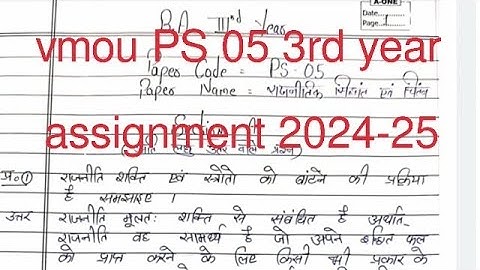 A-ONE
Date
Page 1
B.A IIInd Year
vmou PS 05 3rd year
Paper Code = PS-05
Paper Name = राजनीतिक सिद्धांत एवं चिंतन
assignment 2024-25
प्र०① राजनीति शक्ति एवं स्त्रोतो को बांटने की प्रक्रिया
है समझाइए ।
उत्तर राजनीति मूलतः शक्ति से संबंधित है अर्थात-
राजनीति वह सामर्थ्य है जो अपने
को प्राप्त करने के लिए किसी भी प्रकार के